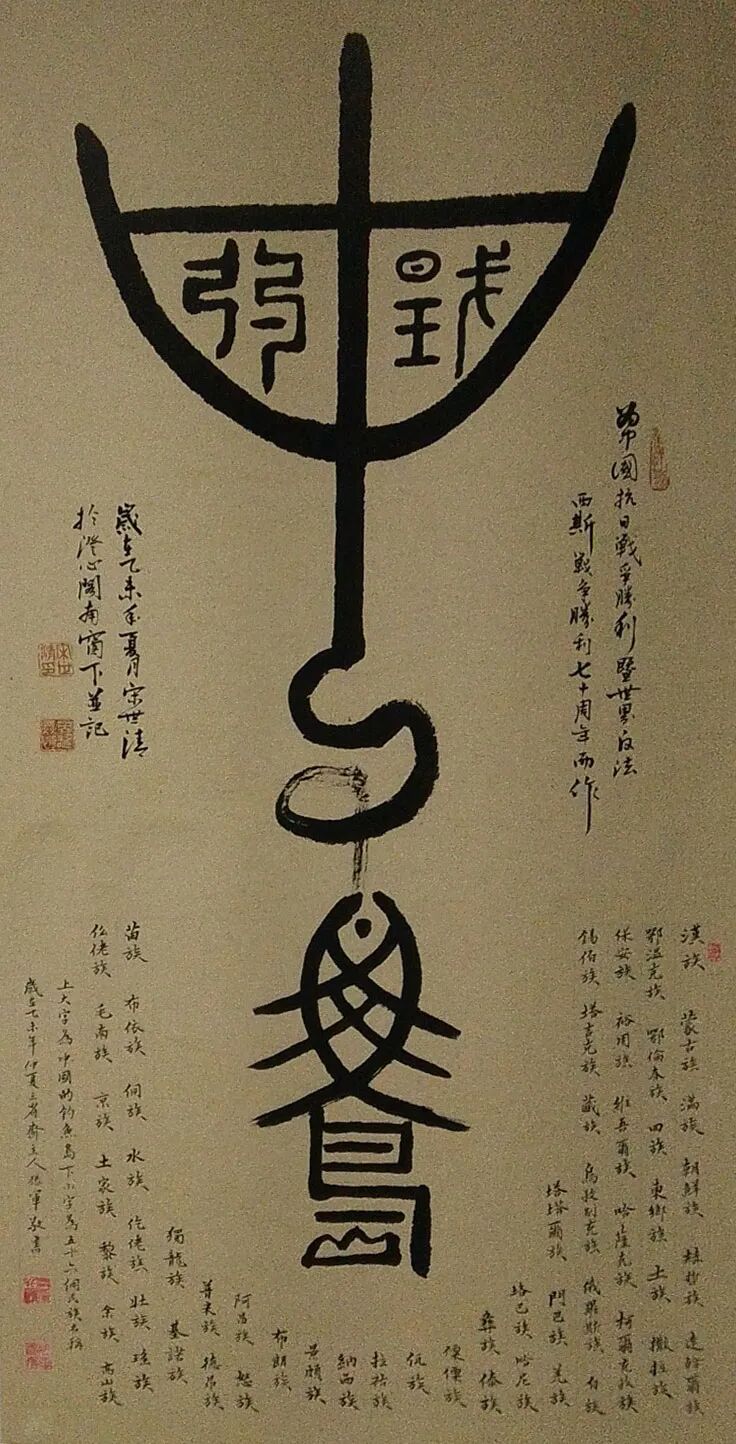 為中國抗日戰爭勝利暨世界反法
西斯戰爭勝利七十周年而作
中
釣
魚
島
歲在乙未年夏月宋世清
於澄心閣南窗下並記
漢族 蒙古族 滿族 朝鮮族 赫哲族 達斡爾族
鄂溫克族 鄂倫春族 回族 東鄉族 土族 撒拉族
保安族 裕固族 維吾爾族 哈薩克族 柯爾克孜族
錫伯族 塔吉克族 藏族 烏孜別克族 俄羅斯族 白族
塔塔爾族 門巴族 羌族
珞巴族 哈尼族
彝族 傣族
傈僳族
佤族
拉祜族
納西族
景頗族
布朗族
阿昌族 怒族
普米族 德昂族
獨龍族 基諾族
苗族 布依族 侗族 水族 仡佬族 壯族 瑤族
仫佬族 毛南族 京族 土家族 黎族 畲族 高山族
上大字為中國的釣魚島下小字為五十六個民族名稱
歲在乙未年仲夏三省齋主人 軍敬書